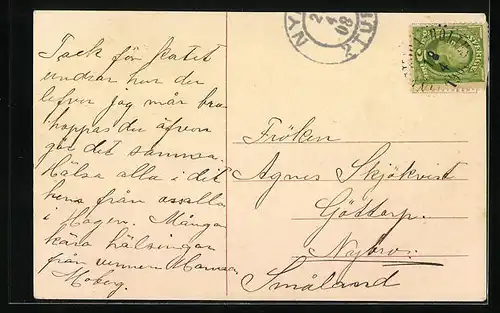 Tack för kortet
undrar hur du
lefver jag mår bra
hoppas du äfven
gör det samma.
Hälsa alla i det
hem från oss alla
i Hagen. Många
kära hälsingar
från vennen Hanna
Moberg.
Fröken
Agnes Skjökvist
Göttorp.
Nybro.
Småland
NY
2
4
08
SVERIGE